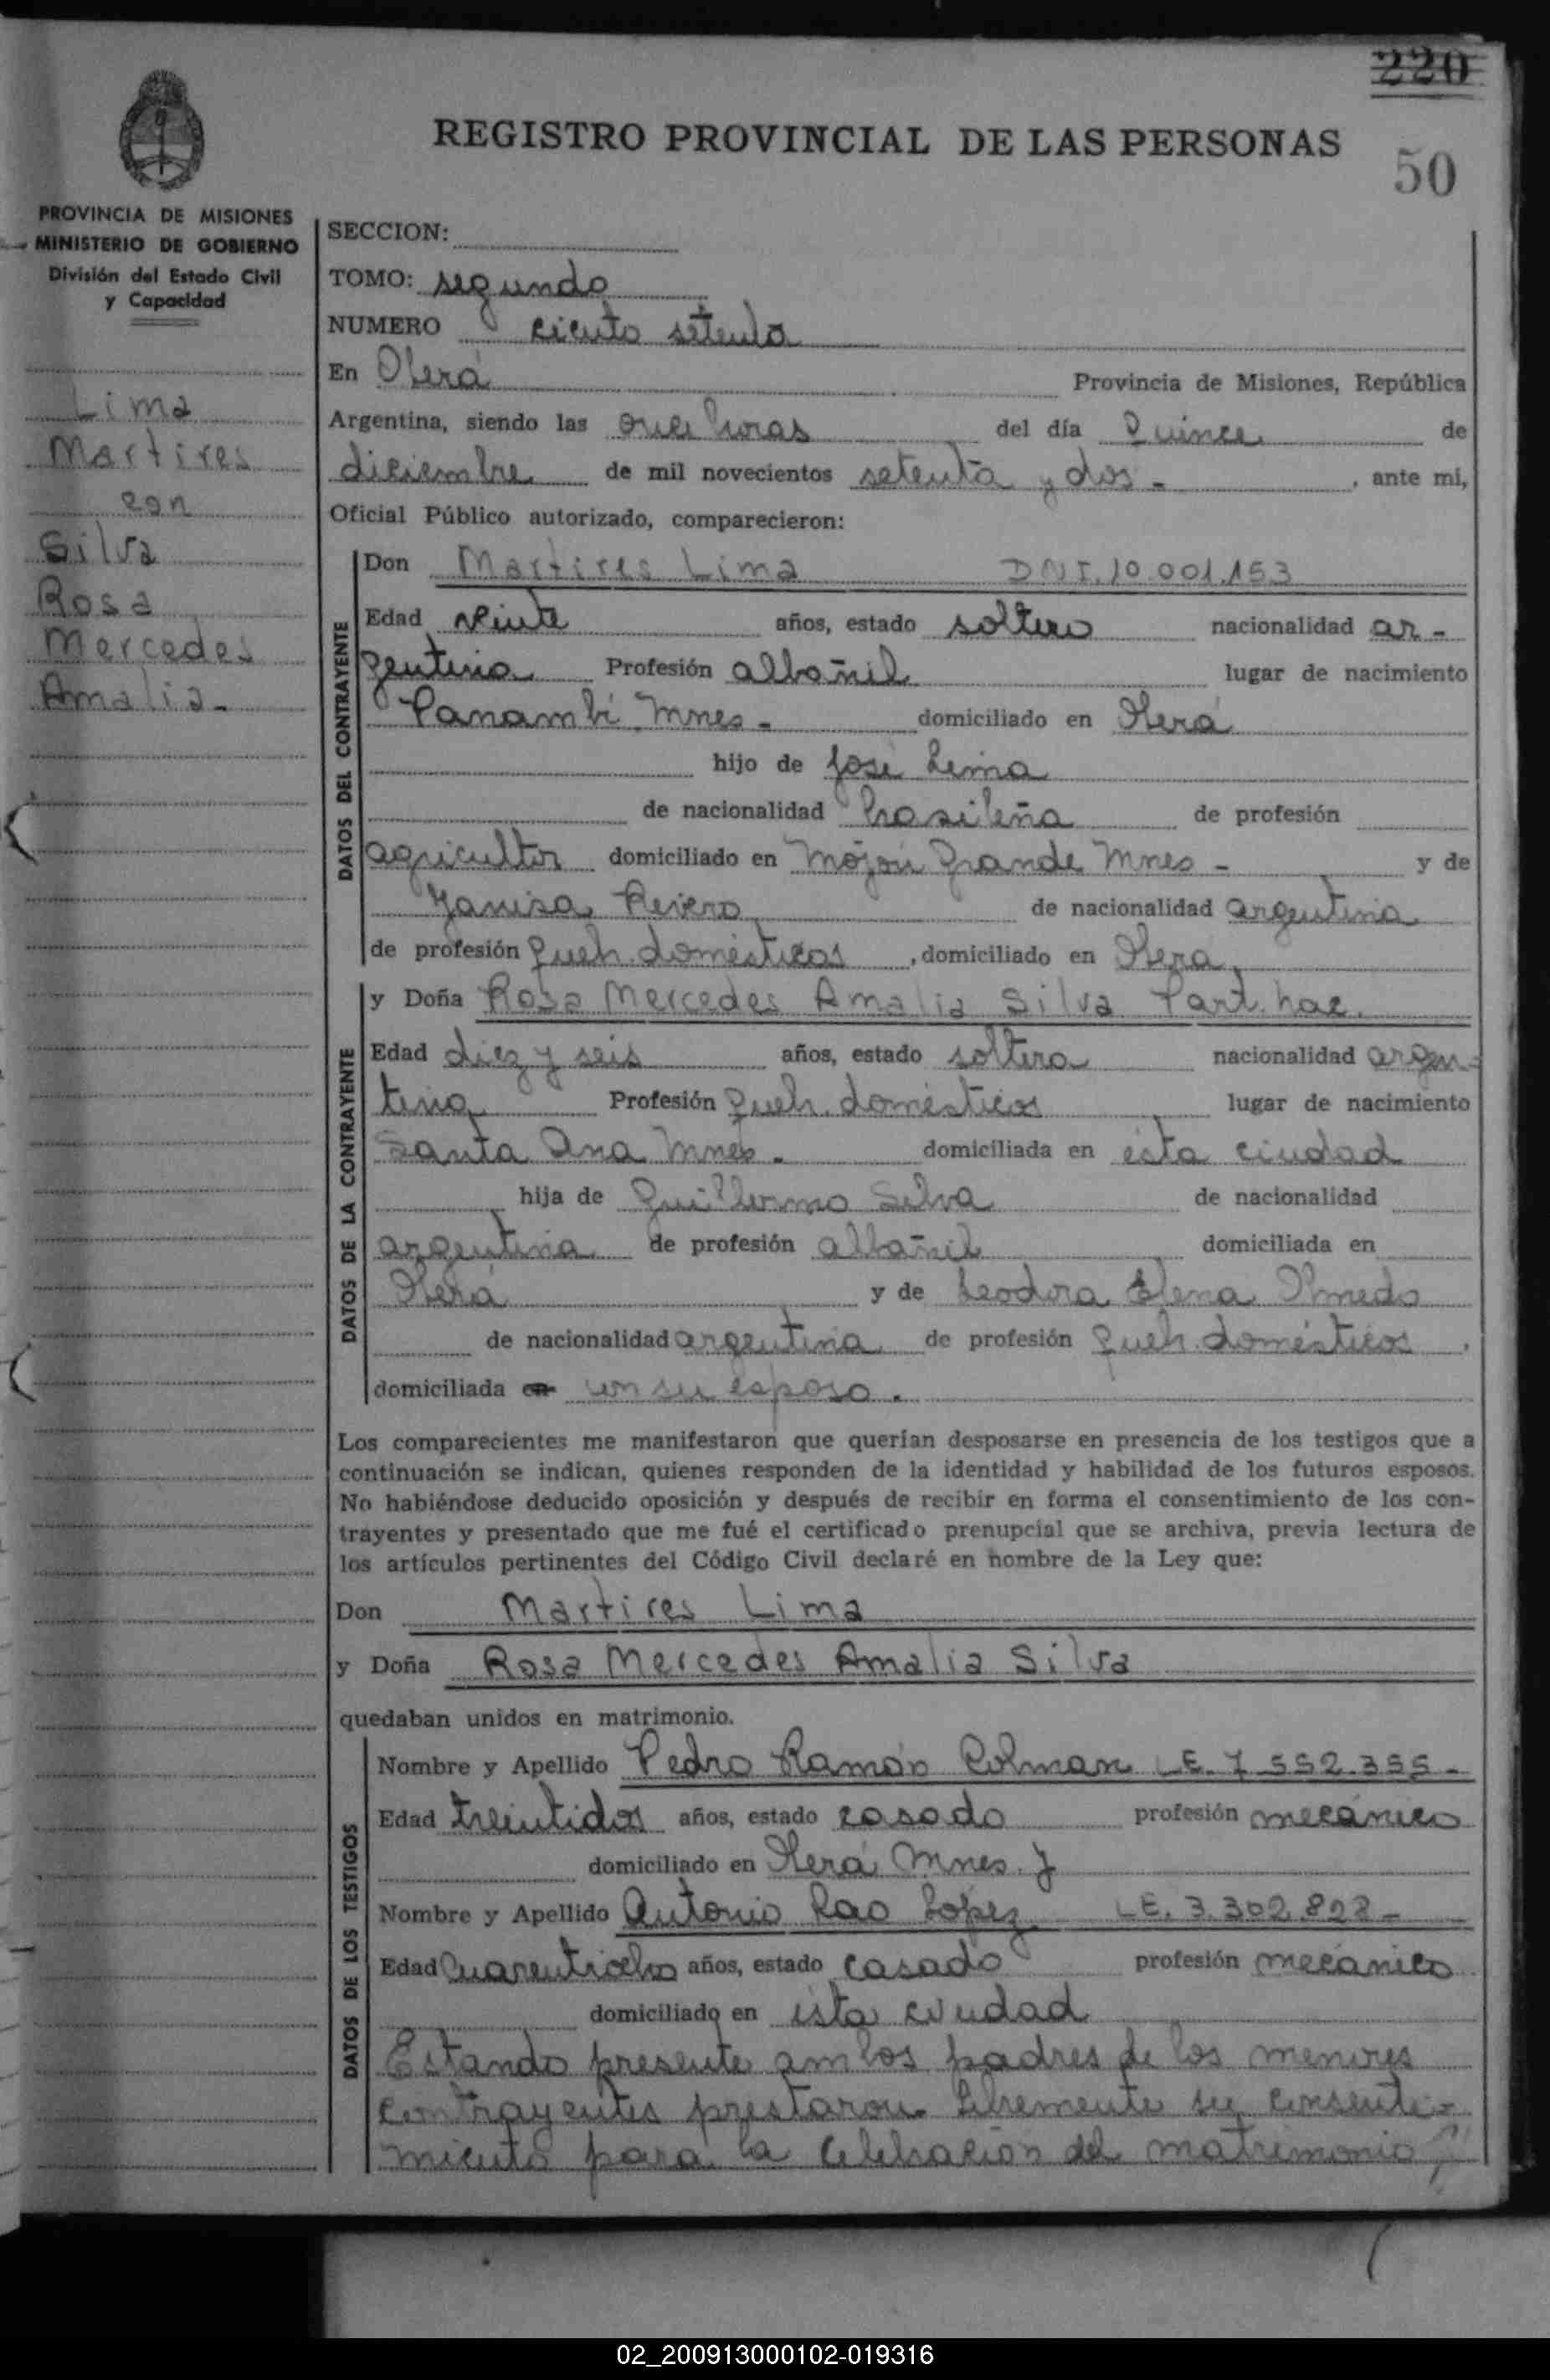 220
REGISTRO PROVINCIAL DE LAS PERSONAS
50
PROVINCIA DE MISIONES
MINISTERIO DE GOBIERNO
División del Estado Civil
y Capacidad
Lima
Martires
con
Silva
Rosa
Mercedes
Amalia.-
SECCION:
TOMO: segundo
NUMERO ciento setenta
En Oberá Provincia de Misiones, República
Argentina, siendo las once horas del día Quince de
diciembre de mil novecientos setenta y dos.- , ante mi,
Oficial Público autorizado, comparecieron:
DATOS DEL CONTRAYENTE
Don Martires Lima DNI.10.001.153
Edad veinte años, estado soltero nacionalidad ar-
gentina Profesión albañil lugar de nacimiento
Panambí Mnes.- domiciliado en Oberá
hijo de José Lima
de nacionalidad brasileña de profesión
agricultor domiciliado en Mojón Grande Mnes - y de
Rivero de nacionalidad argentina
de profesión queh. domésticos , domiciliado en Oberá
DATOS DE LA CONTRAYENTE
y Doña Rosa Mercedes Amalia Silva Part. nac.
Edad diez y seis años, estado soltera nacionalidad argen-
tina Profesión queh. domésticos lugar de nacimiento
Santa Ana Mnes.- domiciliada en ésta ciudad
hija de Guillermo Silva de nacionalidad
argentina de profesión albañil domiciliada en
Oberá y de Leodora Elena Olmedo
de nacionalidad argentina de profesión queh. domésticos ,
domiciliada en con su esposo.
Los comparecientes me manifestaron que querían desposarse en presencia de los testigos que a
continuación se indican, quienes responden de la identidad y habilidad de los futuros esposos.
No habiéndose deducido oposición y después de recibir en forma el consentimiento de los con-
trayentes y presentado que me fué el certificado prenupcial que se archiva, previa lectura de
los artículos pertinentes del Código Civil declaré en nombre de la Ley que:
Don Martires Lima
y Doña Rosa Mercedes Amalia Silva
quedaban unidos en matrimonio.
DATOS DE LOS TESTIGOS
Nombre y Apellido Pedro Ramón Colman LE. 7.552.355-
Edad treintidos años, estado casado profesión mecánico
domiciliado en Oberá Mnes. y
Nombre y Apellido Antonio Rao López LE. 3.302.828-
Edad Cuarentiocho años, estado casado profesión mecánico
domiciliado en ésta ciudad
Estando presente ambos padres de los menores
contrayentes prestaron libremente su consenti-
miento para la celebración del matrimonio
02_200913000102-019316